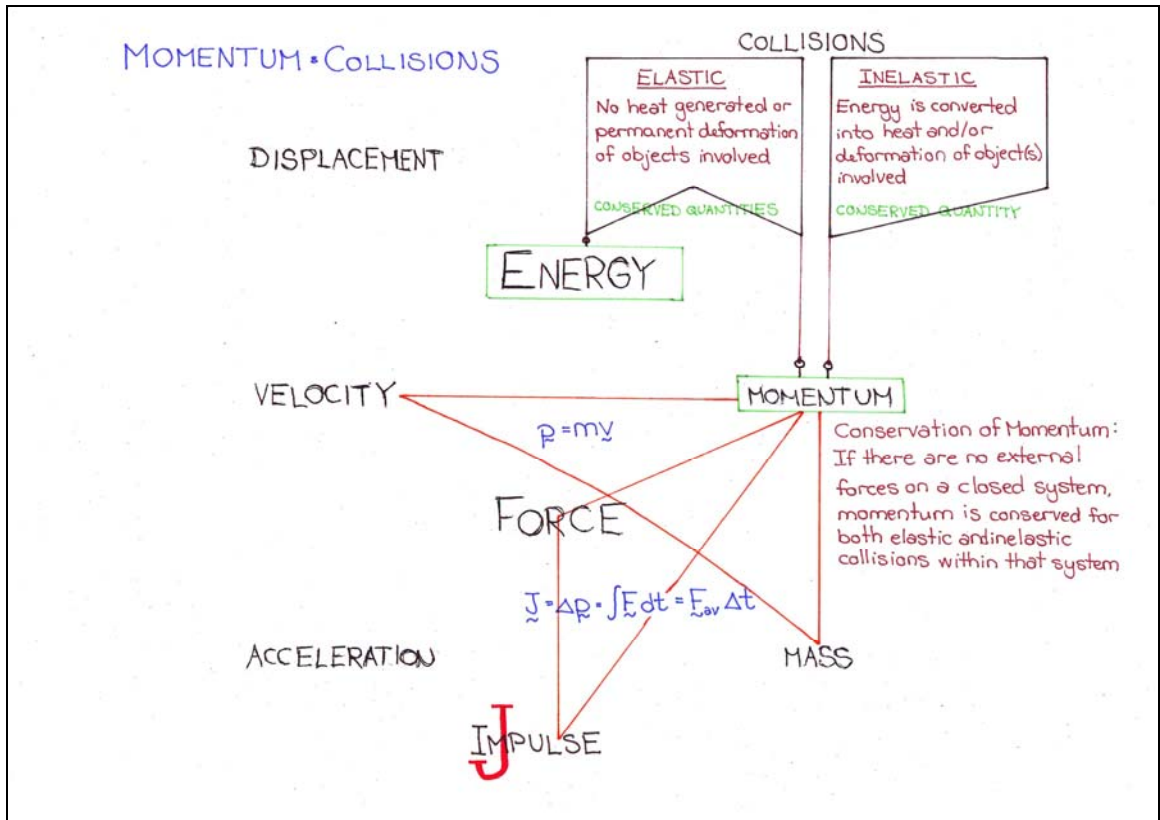 MOMENTUM • COLLISIONS
COLLISIONS
ELASTIC
No heat generated or
permanent deformation
of objects involved
CONSERVED QUANTITIES
INELASTIC
Energy is converted
into heat and/or
deformation of object(s)
involved
CONSERVED QUANTITY
DISPLACEMENT
ENERGY
VELOCITY
MOMENTUM
p = mv
Conservation of Momentum:
If there are no external
forces on a closed system,
momentum is conserved for
both elastic andinelastic
collisions within that system
FORCE
J = Δp = ∫F dt = F_av Δt
ACCELERATION
MASS
IMPULSE
J